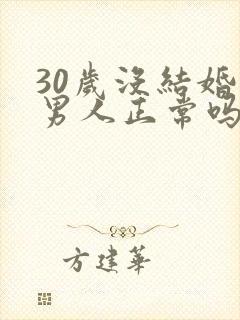 30歲沒結婚
男人正常嗎
方建華